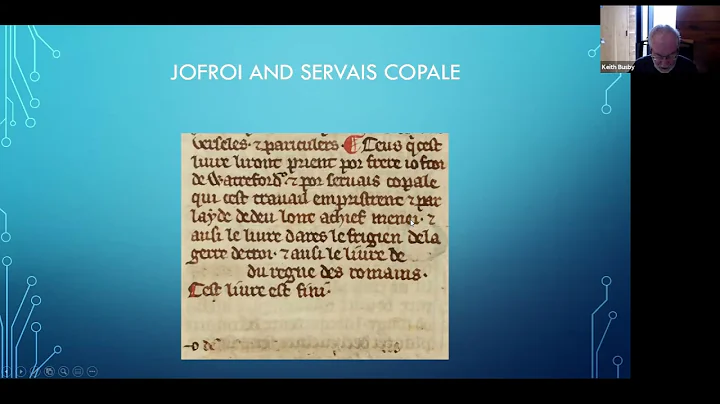 JOFROI AND SERVAIS COPALE
Keith Busby
verseles. ⁊ particulers. Ceus q̄ cest
livre liront prient por frere iofroi
de Watreford. ⁊ por servais copale
qui cest travail empristrent ⁊ par
layde de deu lont achief menei. ⁊
ausi le livre dares le frigien de la
gerre de troi. ⁊ ausi le livre de
du regne des romains.
Cest livre est fini.